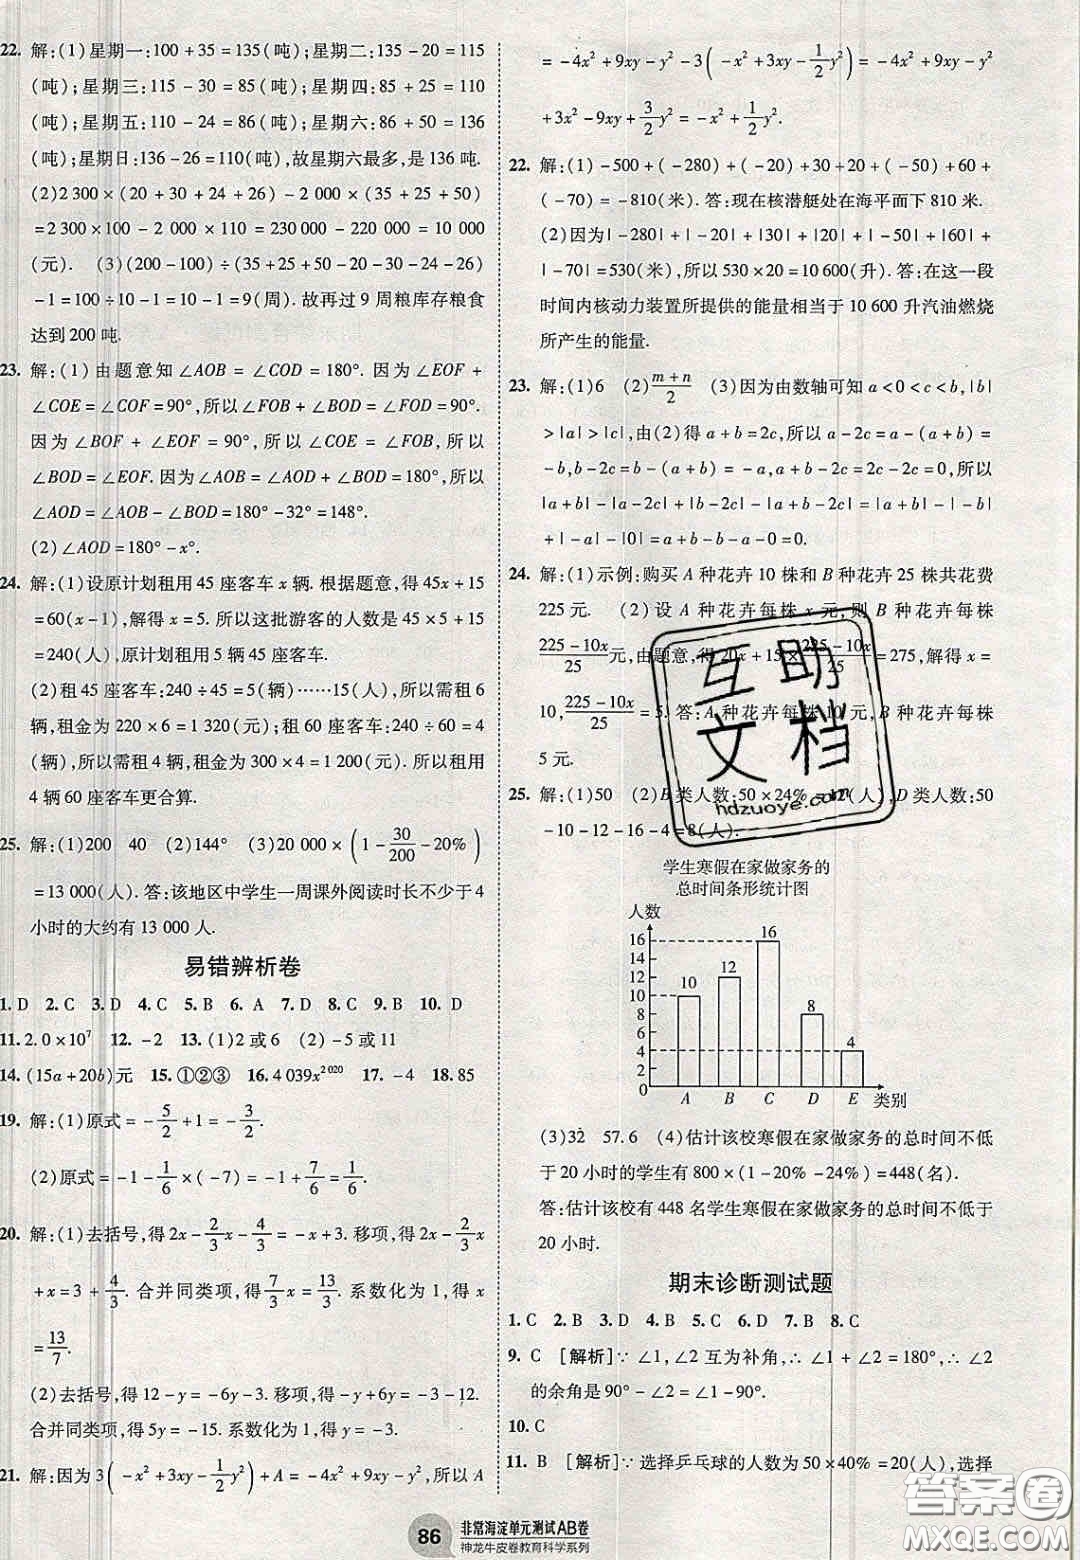 22. 解:(1)星期一:100+35=135(吨);星期二:135-20=115
(吨);星期三:115-30=85(吨);星期四:85+25=110
(吨);星期五:110-24=86(吨);星期六:86+50=136
(吨);星期日:136-26=110(吨),故星期六最多,是136吨.
(2)2 300×(20+30+24+26)-2 000×(35+25+50)
=2 300×100-2 000×110=230 000-220 000=10 000
(元).　(3)(200-100)÷(35-20-30+25-24+50-26)
-1=100÷10-1=9(周). 故再过9周粮库存粮食
达到200吨.
23. 解:(1)由题意知∠AOB=∠COD=180°. 因为∠EOF+
∠COE=∠COF=90°,所以∠FOB+∠BOD=∠FOD=90°.
因为∠BOF+∠EOF=90°,所以∠COE=∠FOB,所以
∠BOD=∠EOF. 因为∠AOB=180°,∠EOF=32°,所以
∠AOD=∠AOB-∠BOD=180°-32°=148°.
(2)∠AOD=180°-x°.
24. 解:(1)设原计划租用45座客车x辆. 根据题意,得45x+15
=60(x-1),解得x=5. 所以这批游客的人数是45×5+15
=240(人),原计划租用5辆45座客车.
(2)租45座客车:240÷45=5(辆)……15(人),所以需租6
辆,租金为220×6=1 320(元);租60座客车:240÷60=4
(辆),所以需租4辆,租金为300×4=1 200(元). 所以租用
4辆60座客车更合算.
25. 解:(1)200　40　(2)144°　(3)20 000×(1-30/200-20%)
=13 000(人). 答:该地区中学生一周课外阅读时长不少于4
小时的大约有13 000人.
易错辨析卷
1. D　2. C　3. D　4. C　5. B　6. A　7. D　8. C　9. B　10. D
11. 2.0×10⁷　12. -2　13. (1)2或6　(2)-5或11
14. (15a+20b)元　15. ①②③　16. 4 039x²⁰²⁰　17. -4　18. 85
19. 解:(1)原式=-5/2+1=-3/2.
(2)原式=-1-1/6×(2-9)=-1+7/6=1/6.
20. 解:(1)去括号,得2x-2/3x-4/3=-x+3. 移项,得2x-2/3x
+x=3+4/3. 合并同类项,得7/3x=13/3. 系数化为1,得x
=13/7.
(2)去括号,得12-y=-6y-3. 移项,得-y+6y=-3-12.
合并同类项,得5y=-15. 系数化为1,得y=-3.
21. 解:因为3(-x²+3xy-1/2y²)+A=-4x²+9xy-y²,所以A
=-4x²+9xy-y²-3(-x²+3xy-1/2y²)=-4x²+9xy-y²
+3x²-9xy+3/2y²=-x²+1/2y².
22. 解:(1)-500+(-280)+(-20)+30+20+(-50)+60+
(-70)=-810(米). 答:现在核潜艇处在海平面下810米.
(2)因为|-280|+|-20|+|30|+|20|+|-50|+|60|
+|-70|=530(米),所以530×20=10 600(升). 答:在这一段
时间内核动力装置所提供的能量相当于10 600升汽油燃烧
所产生的能量.
23. 解:(1)6　(2)(m+n)/2　(3)因为由数轴可知a<0<c<b,|b|
>|a|>|c|,由(2)得a+b=2c,所以a-2c=a-(a+b)=
-b,b-2c=b-(a+b)=-a,a+b-2c=2c-2c=0,所以
|a+b|-|a-2c|+|b-2c|-|a+b-2c|=a+b-|-b|+
|-a|-|0|=a+b-b-a-0=0.
24. 解:(1)示例:购买A种花卉10株和B种花卉25株共花费
225元.　(2)设A种花卉每株x元,则B种花卉每株
(225-10x)/25元,由题意,得20x+15×(225-10x)/25=275,解得x=
10,(225-10x)/25=5. 答:A种花卉每株10元,B种花卉每株
5元.
25. 解:(1)50　(2)B类人数:50×24%=12(人),D类人数:50
-10-12-16-4=8(人).
学生寒假在家做家务的
总时间条形统计图
人数
16
14
12
10
8
6
4
2
0
10
12
16
8
4
A B C D E 类别
(3)32　57.6　(4)估计该校寒假在家做家务的总时间不低
于20小时的学生有800×(1-20%-24%)=448(名).
答:估计该校有448名学生寒假在家做家务的总时间不低于
20小时.
期末诊断测试题
1. C　2. B　3. D　4. D　5. B　6. D　7. B　8. C
9. C　[解析]∵∠1,∠2互为补角,∴∠1+∠2=180°,∴∠2
的余角是90°-∠2=∠1-90°.
10. C
11. B　[解析]∵选择乒乓球的人数为50×40%=20(人),选择
86
非常海淀单元测试AB卷
神龙牛皮卷教育科学系列
互助
文档
hdzuoye.com
答案圈
MXQE.COM